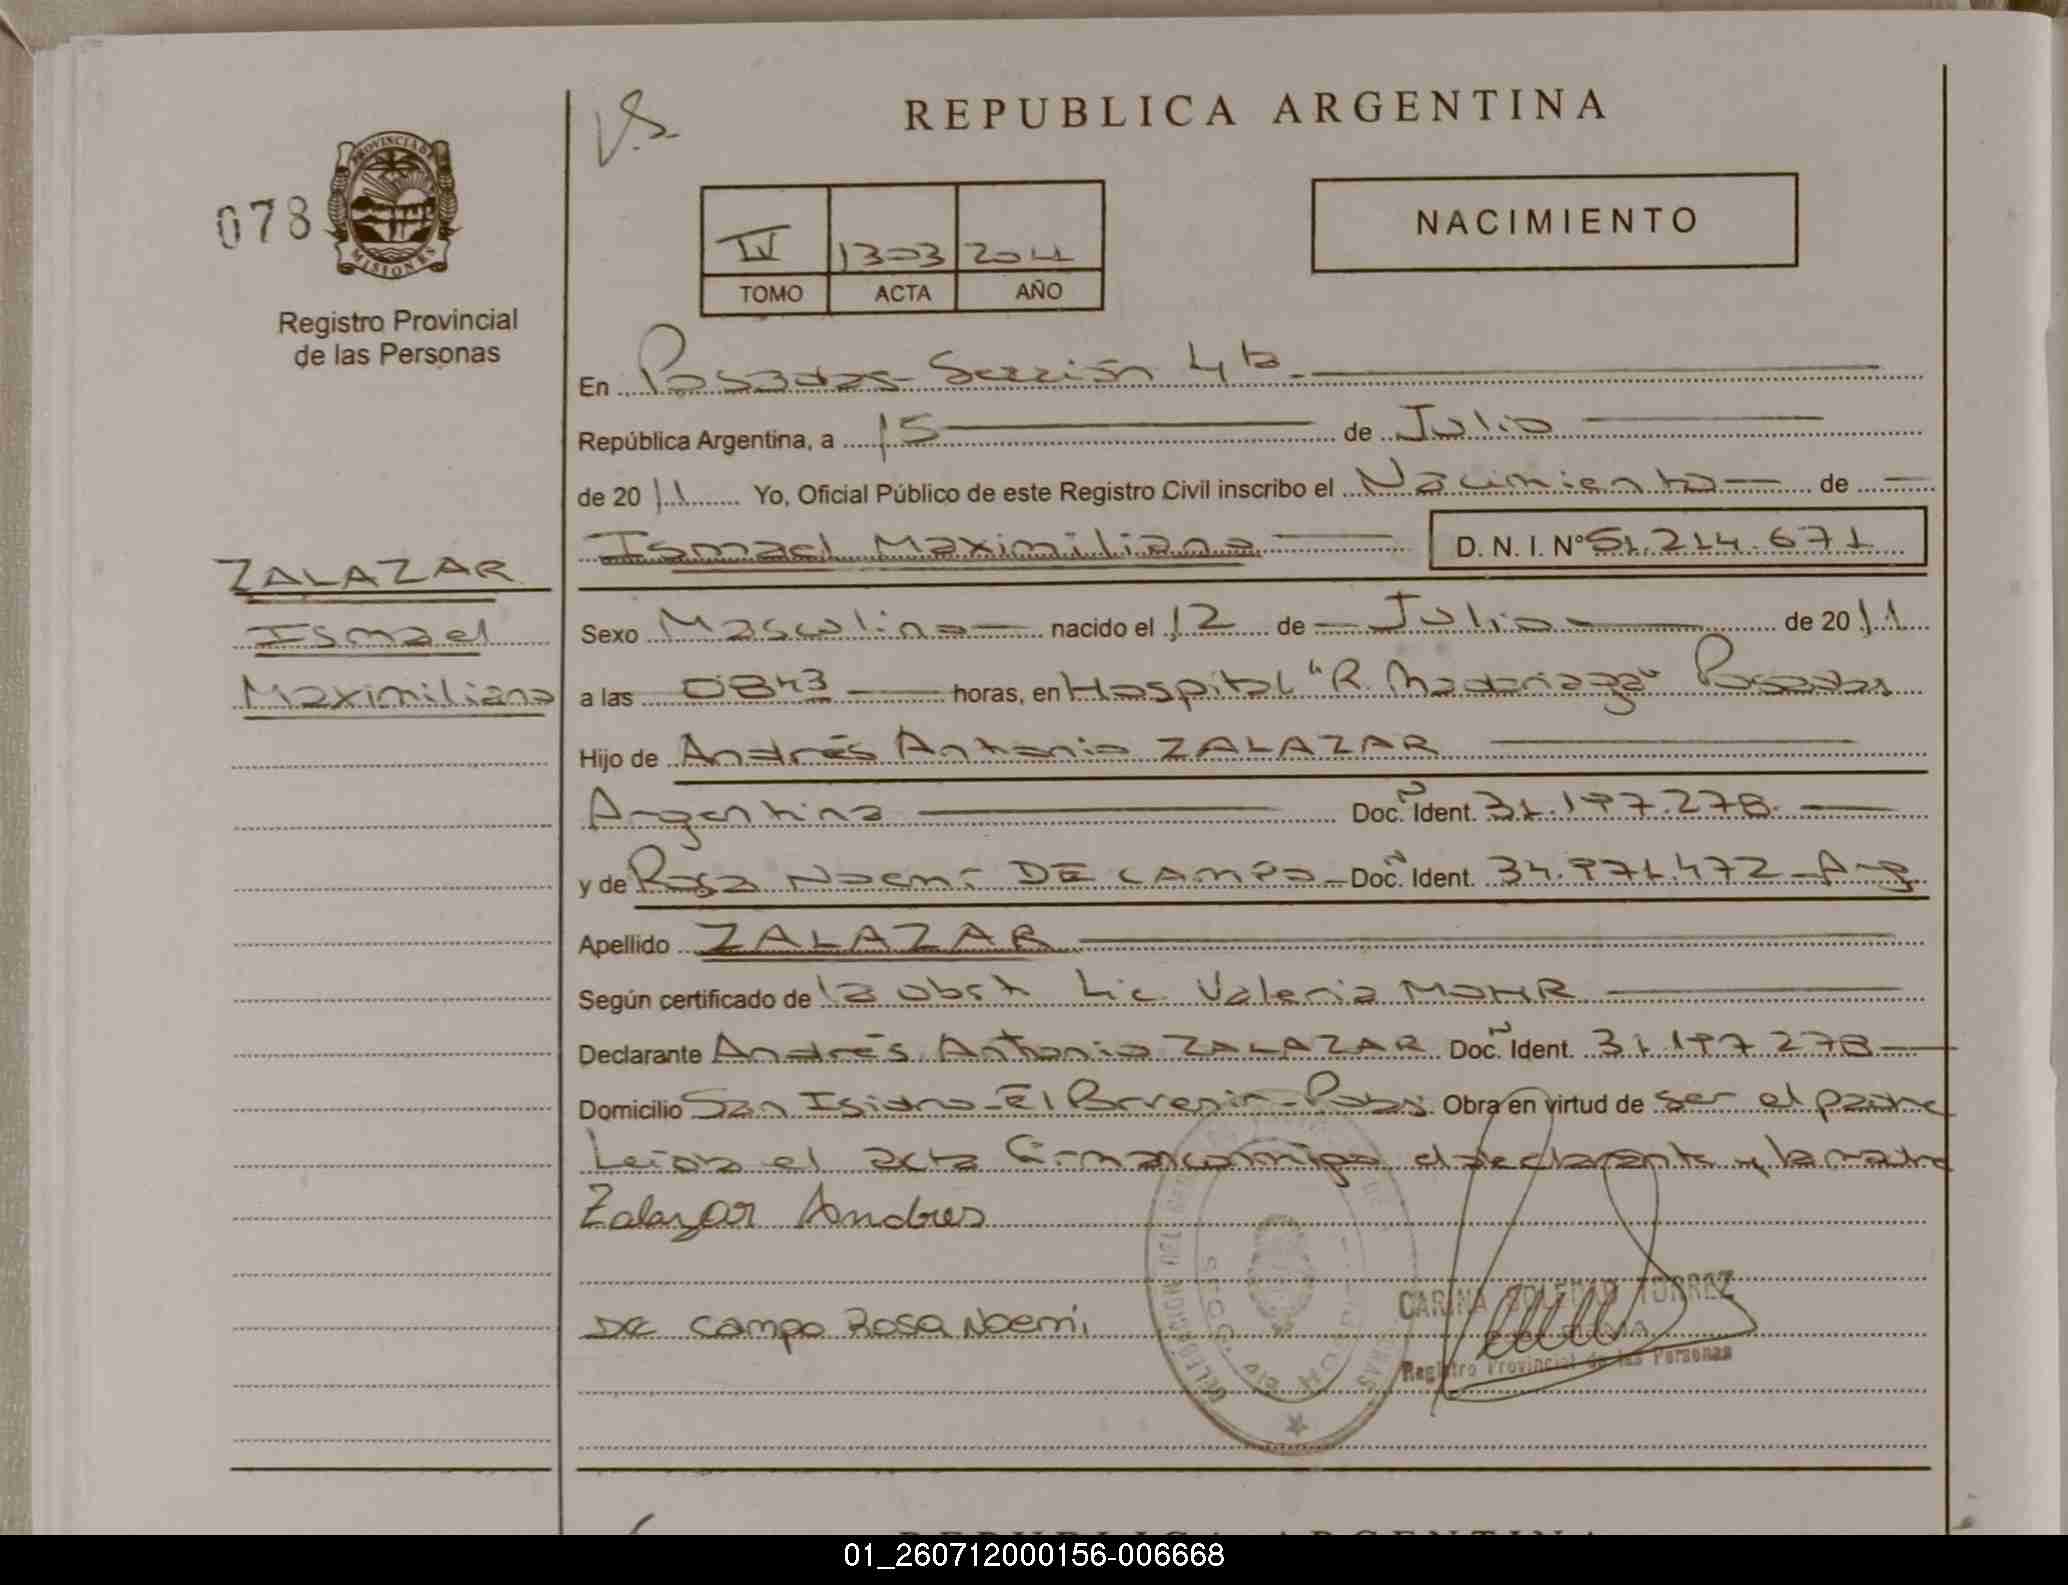 REPUBLICA ARGENTINA
V.S.
078
PROVINCIA DE
MISIONES
Registro Provincial
de las Personas
IV 1303 2011
TOMO ACTA AÑO
NACIMIENTO
En Posadas - Sección 4ta
República Argentina, a 15 de Julio
de 2011 Yo, Oficial Público de este Registro Civil inscribo el Nacimiento de
Ismael Maximiliano D. N. I. Nº 51.214.671
ZALAZAR
Ismael
Maximiliano
Sexo Masculino nacido el 12 de Julio de 2011
a las 0843 horas, en Hospital "R. Madariaga" Posadas
Hijo de Andrés Antonio ZALAZAR
Argentina Doc. Ident. 31.197.278
y de Rosa Noemí DE CAMPO Doc. Ident. 34.971.472 - Arg
Apellido ZALAZAR
Según certificado de la obst Lic Valeria MOHR
Declarante Andrés Antonio ZALAZAR Doc. Ident. 31.197.278
Domicilio San Isidro - El - Obra en virtud de ser el padre
Leida el acta firman conmigo el declarante y la madre
Zalazar Andres
De Campo Rosa Noemi
CARINA SOLEDAD TORREZ
Registro Provincial de las Personas
SECC. 4ta
REPUBLICA ARGENTINA
01_260712000156-006668